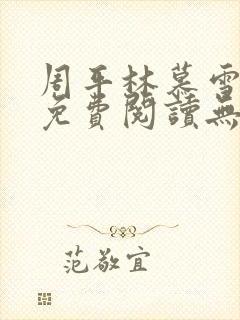 周平林慕雪
免費閱讀無
范敬宜